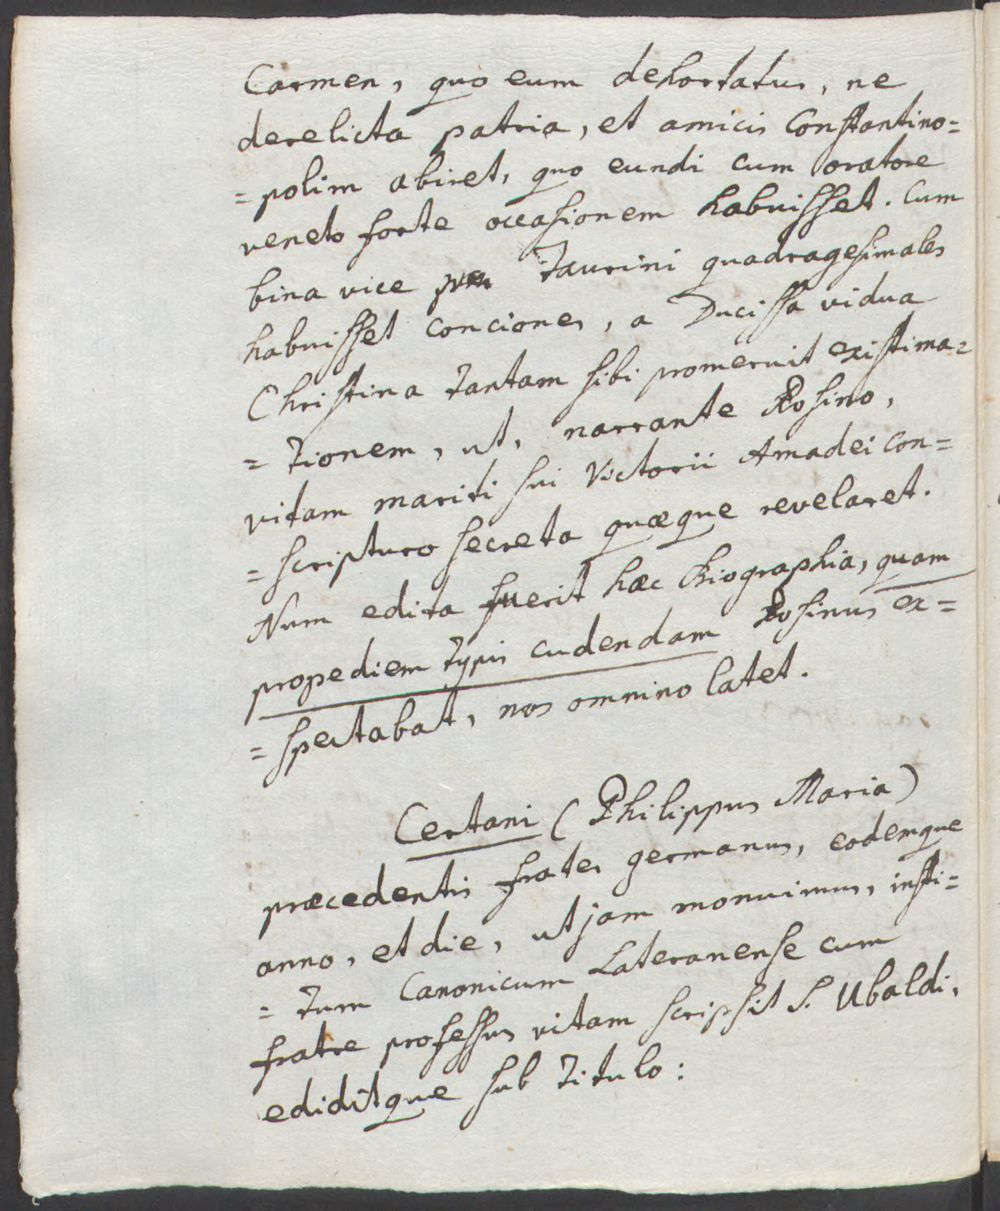 Carmen, quo eum dehortatus, ne
derelicta patria, et amicis Constantino=
=polim abiret, quo eundi cum oratore
veneto forte occasionem habuisset. Cum
bina vice Taurini quadragesimales
habuisset conciones, a Ducissa vidua
Christina tantam sibi promeruit existima=
=tionem, ut, narrante Rosino,
vitam mariti sui Victorii Amadei con=
=scripturo secreta quæque revelaret.
Num edita fuerit hæc Biographia, quam
propediem typis cudendam Rosinus ex=
=spectabat, nos omnino latet.
Certani (Philippus Maria)
præcedentis frater germanus, eodemque
anno, et die, ut jam monuimus, insti=
=tum Canonicum Lateranense cum
fratre professus vitam scripsit S. Ubaldi,
ediditque sub titulo: